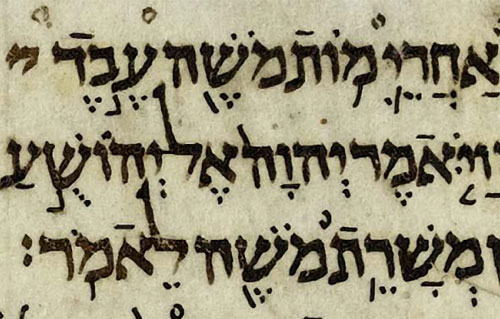 אַחֲרֵי מוֹת מֹשֶׁה עֶבֶד י
וַיֹּאמֶר יְהוָה אֶל־יְהוֹשֻׁעַ
מְשָׁרֵת מֹשֶׁה לֵאמֹר׃